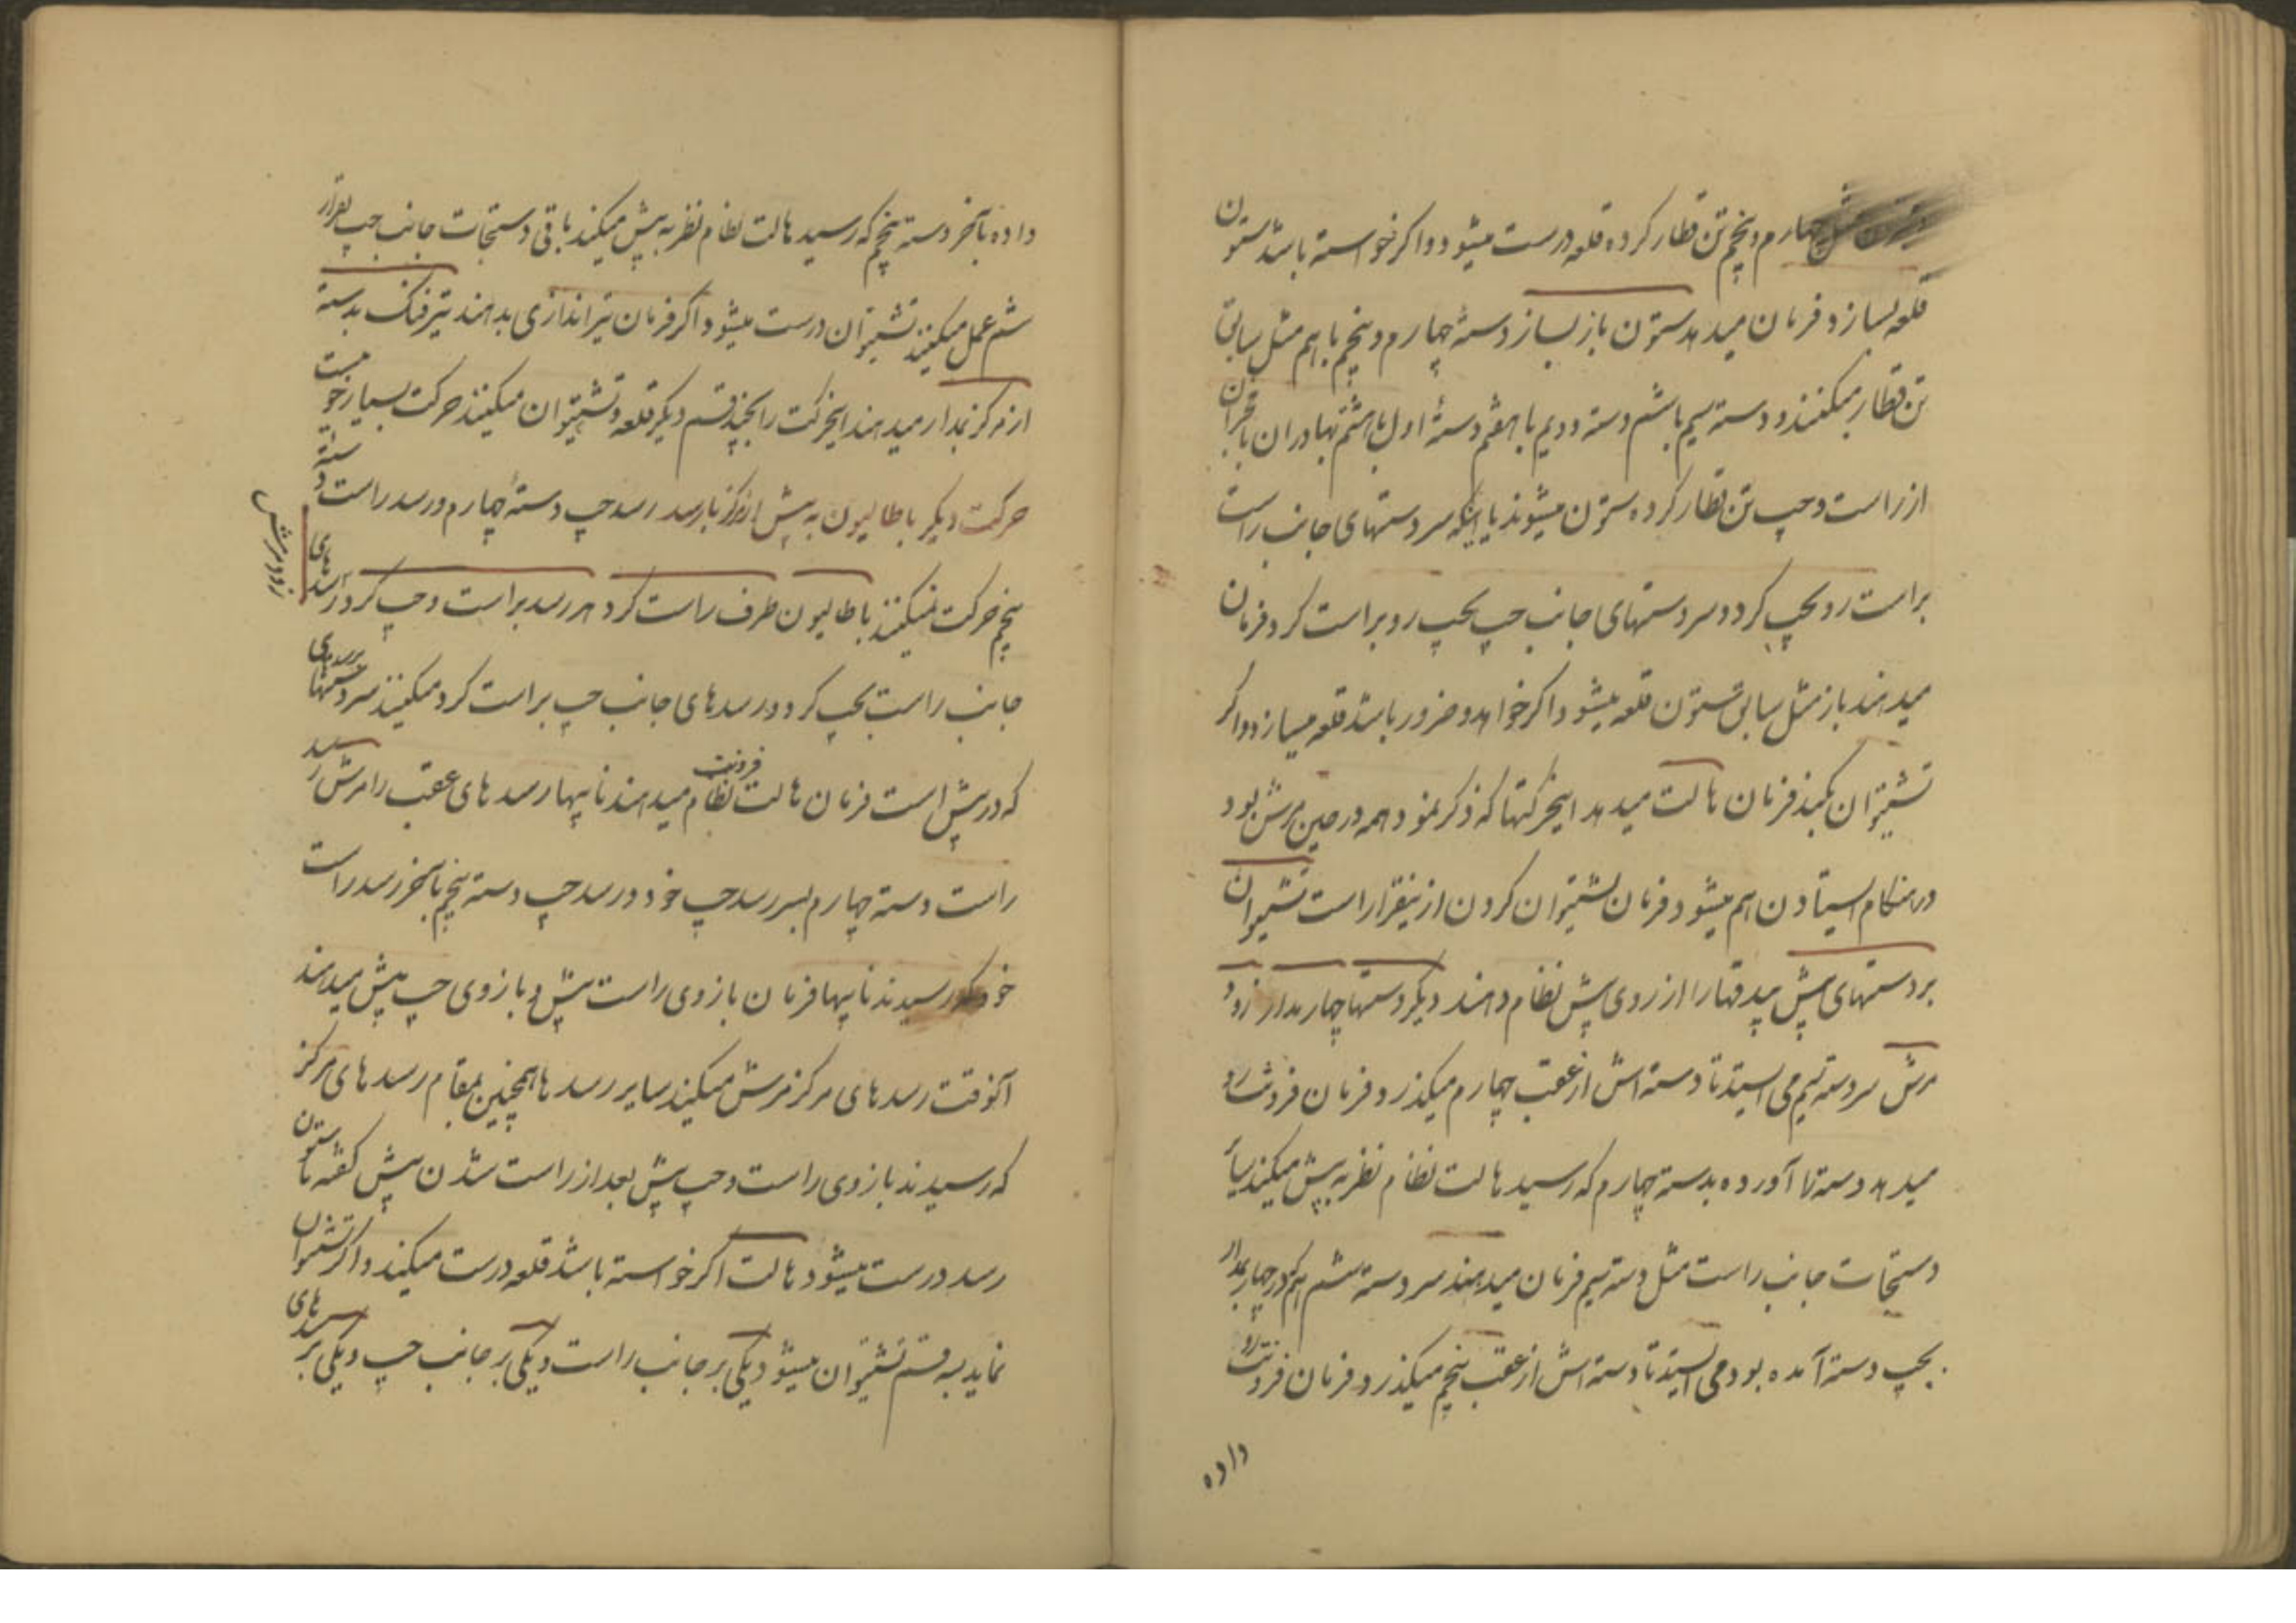 چهارم و پنجم تن قطار کرده قلعه درست میشود و اکر خواسته باشد ستون
قلعه بسازد فرمان میدهد ستون باز بساز دستهٔ چهارم و پنجم باهم مثل سابق
تن قطار میکنند و دسته سیم باششم دسته دویم با هفتم دستهٔ اول با هشتم بهادران با
از راست و چپ تن قطار کرده ستون میشوند یا اینکه سر دستهای جانب راست
براست رو بچپ کرد و سر دستهای جانب چپ بچپ رو براست کرد فرمان
میدهند باز مثل سابق ستون قلعه میشود اکر خواهد و ضرور باشد قلعه میسازد و اکر
تشیوان بکند فرمان هالت میدهد اینحرکتها که ذکر نمود همه در حین مرش بود
در هنکام ایستادن هم میشود فرمان تشیوان کردن از ینقرار است تشیوان
بر دستهای پیش پیدقها را از روی پیش نظام دهند دیکر دستها چار بدار زود
مرش سر دسته سیم می ایستد تا دسته اش از عقب چهارم میکذرد فرمان فرونت رو
میدهد دسته را آورده بدسته چهارم که رسید هالت نظام نظر به پیش میکند سایر
دستجات جانب راست مثل دسته سیم فرمان میدهند سر دسته ششم هم که در چهار بدار
بچپ دسته آمده بود می ایستد تا دسته اش از عقب پنجم میکذرد فرمان فرونت رو
داده
داده بآخر دسته پنجم که رسید هالت نظام نظر به پیش میکند باقی دستجات جانب چپ بقرار
ششم عمل میکنند تشیوان درست میشود اکر فرمان تیراندازی بدهند تیر فنک بدسته
از مرکز بدار میدهند اینحرکت را بچند قسم دیکر قلعه و تشیوان میکنند حرکت بسیار خوبیست
حرکت دیکر باطالیون به پیش از مرکز بارسد رسد چپ دستهٔ چهارم و رسد راست دسته
پنجم حرکت نمیکنند باطالیون طرف راست کرد هر رسد براست و چپ کرد رسدهای
زود مرش
جانب راست بچپ کرد و رسدهای جانب چپ براست کرد میکنند سر دستها برسدی
که در پیش است فرمان هالت فرونت نظام میدهند ناپیها رسدهای عقب را مرش رسد
راست دسته چهارم بسر رسد چپ خود و رسد چپ دسته پنجم بآخر رسد راست
خود که رسیدند ناپیها فرمان بازوی راست پیش و بازوی چپ پیش میدهند
آنوقت رسدهای مرکز مرش میکنند سایر رسدها همچنین بمقام رسدهای مرکز
که رسیدند بازوی راست و چپ پیش بعد از راست شدن پیش کفته تا ستون
رسد درست میشود هالت اکر خواسته باشد قلعه درست میکند و اکر تشیوان
نماید به سه قسم تشیوان میشود یکی بر جانب راست و یکی بر جانب چپ و یکی بر رسدهای